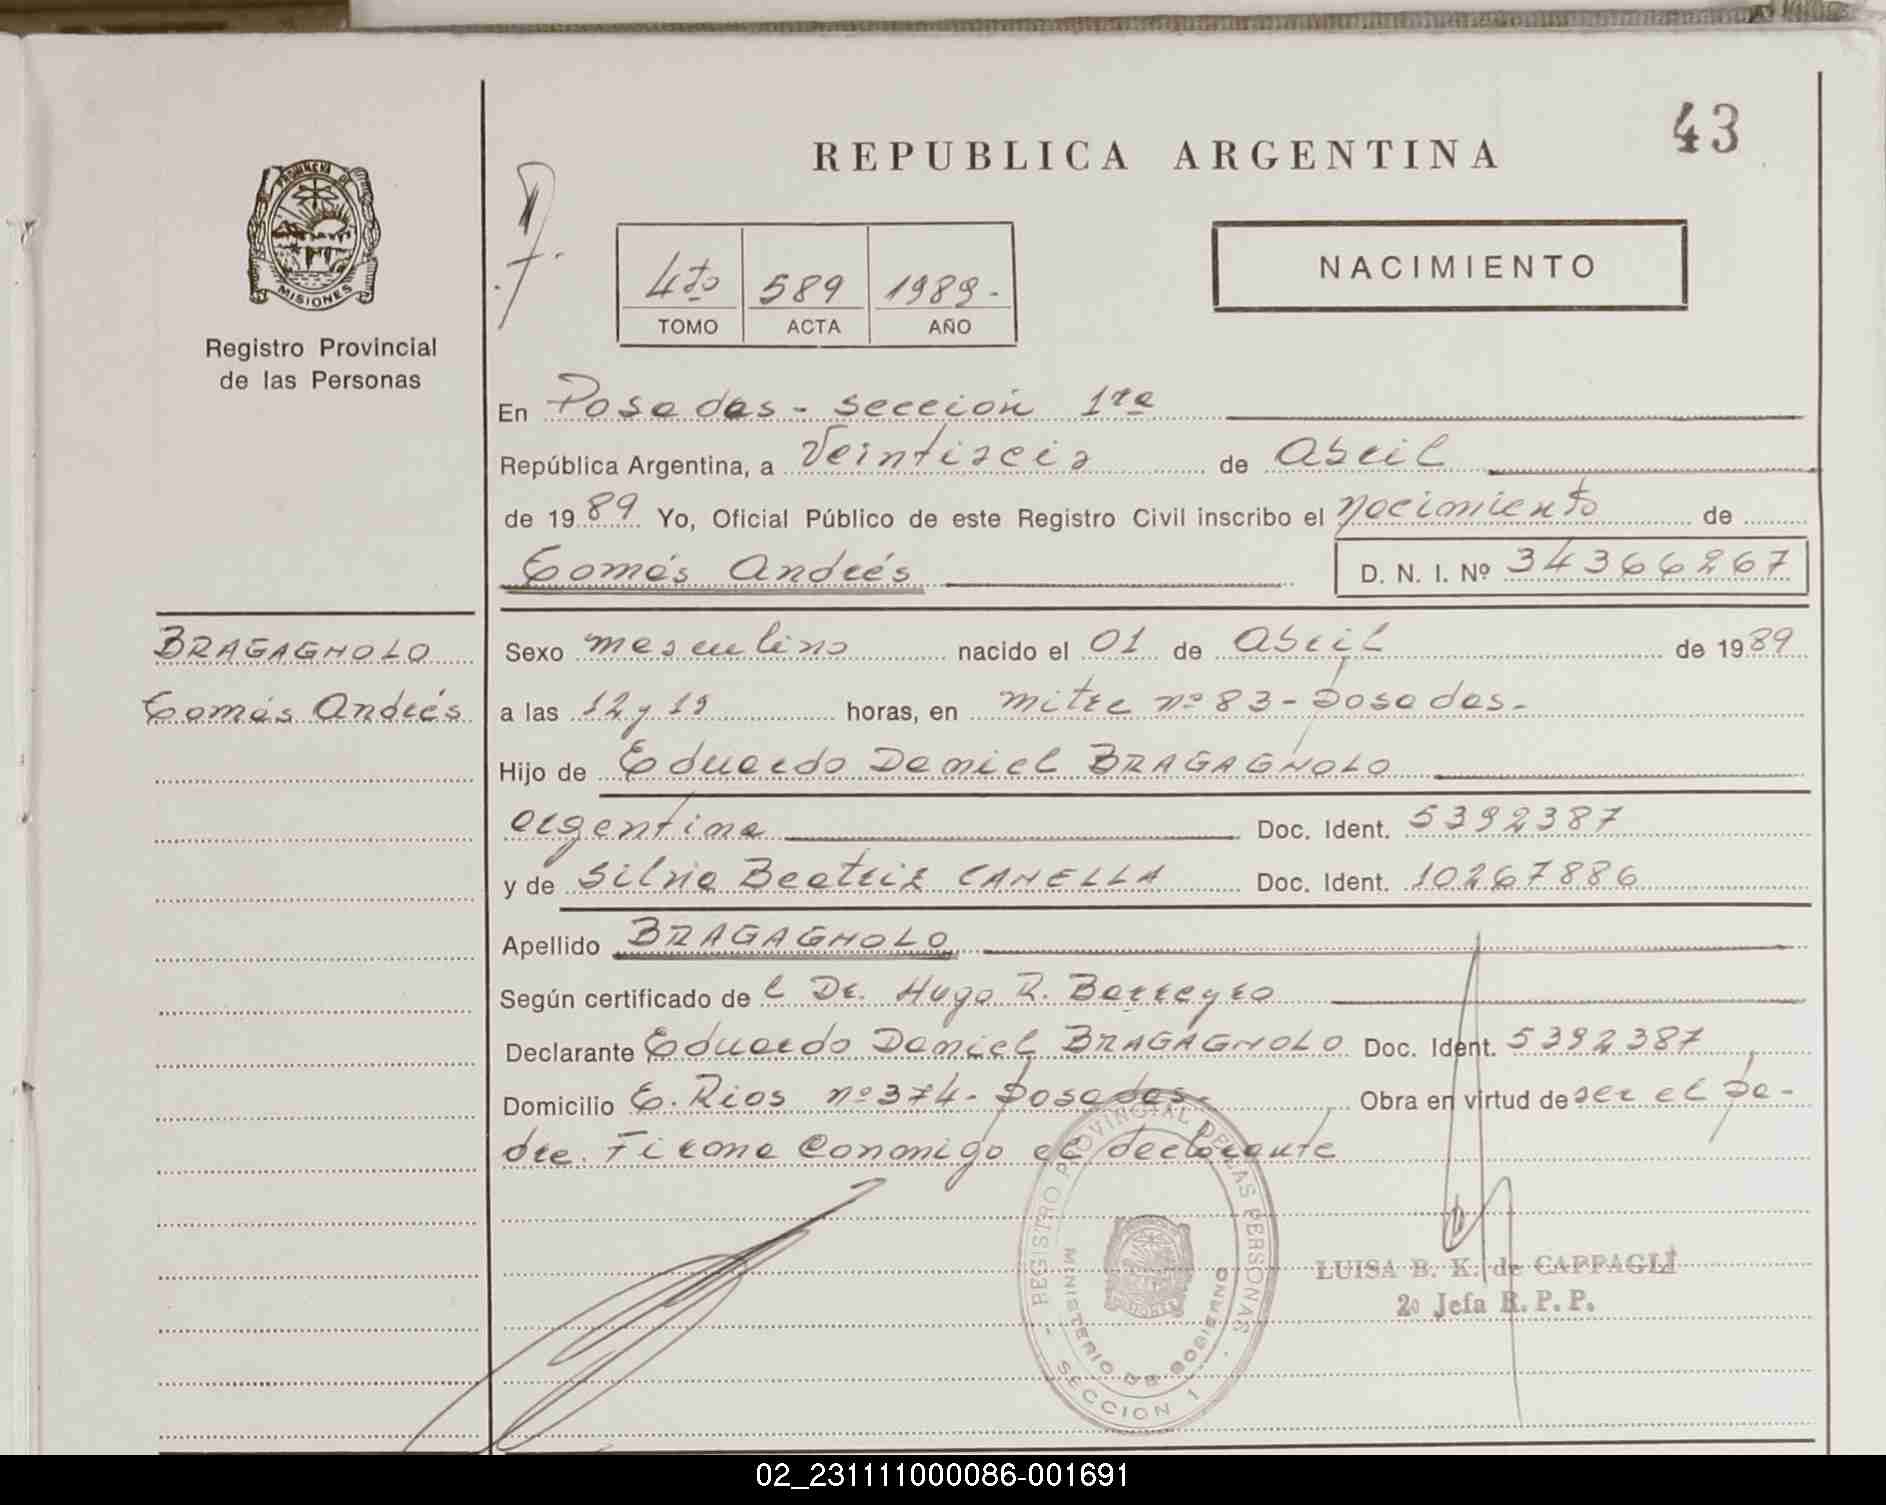 43
REPUBLICA ARGENTINA
PROVINCIA DE
MISIONES
Registro Provincial
de las Personas
4to 589 1989.-
TOMO ACTA AÑO
NACIMIENTO
En Posadas - sección 1ra
República Argentina, a Veintiseis de Abril
de 1989 Yo, Oficial Público de este Registro Civil inscribo el nacimiento de
Tomás Andrés D. N. I. Nº 34366267
BRAGAGNOLO
Tomás Andrés
Sexo masculino nacido el 01 de Abril de 1989
a las 12 y 19 horas, en mitre nº 83 - posadas.-
Hijo de Eduardo Daniel BRAGAGNOLO
argentina Doc. Ident. 5392387
y de Silvia Beatriz CANELLA Doc. Ident. 10267886
Apellido BRAGAGNOLO
Según certificado de l Dr. Hugo R. Barreyro
Declarante Eduardo Daniel BRAGAGNOLO Doc. Ident. 5392387
Domicilio E. Rios nº 374 - posadas.- Obra en virtud de ser el pa-
dre. Firma conmigo el declarante
REGISTRO PROVINCIAL DE LAS PERSONAS
MINISTERIO DE GOBIERNO
- SECCION 1 -
LUISA B. K. de CAPPAGLI
2º Jefa R. P. P.
02_231111000086-001691